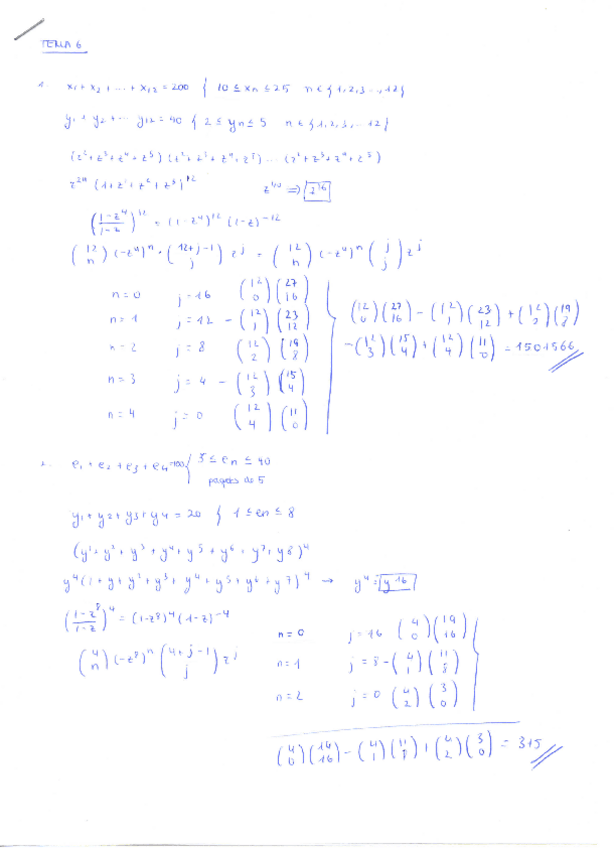 TEMA 6
1. x₁ + x₂ + ... + x₁₂ = 200 { 10 ≤ xn ≤ 25 n ∈ {1,2,3...,12}
y₁ + y₂ + ... y₁₂ = 40 { 2 ≤ yn ≤ 5 n ∈ {1,2,3,...12}
(z²+z³+z⁴+z⁵) (z²+z³+z⁴+z⁵) ... (z²+z³+z⁴+z⁵)
z²⁴ (1+z¹+z²+z³)¹² z⁴⁰ ⇒ z¹⁶
((1-z⁴)/(1-z))¹² = (1-z⁴)¹² (1-z)⁻¹²
(12 n) (-z⁴)ⁿ · (12+j-1 j) zʲ = (12 n) (-z⁴)ⁿ (j j) zʲ
n=0 j=16 (12 0) (27 16)
n=1 j=12 - (12 1) (23 12)
n=2 j=8 (12 2) (19 8)
n=3 j=4 - (12 3) (15 4)
n=4 j=0 (12 4) (11 0)
(12 0)(27 16) - (12 1)(23 12) + (12 2)(19 8)
-(12 3)(15 4) + (12 4)(11 0) = 1501566
2. e₁ + e₂ + e₃ + e₄ = 100 { 5 ≤ en ≤ 40
de 5
y₁ + y₂ + y₃ + y₄ = 20 { 1 ≤ en ≤ 8
(y¹+y²+y³+y⁴+y⁵+y⁶+y⁷+y⁸)⁴
y⁴(1+y+y²+y³+y⁴+y⁵+y⁶+y⁷)⁴ → y⁴ = y¹⁶
((1-z⁸)/(1-z))⁴ = (1-z⁸)⁴ (1-z)⁻⁴
(4 n) (-z⁸)ⁿ (4+j-1 j) zʲ
n=0 j=16 (4 0) (19 16)
n=1 j=8 - (4 1) (11 8)
n=2 j=0 (4 2) (3 0)
(4 0)(19 16) - (4 1)(11 8) + (4 2)(3 0) = 315